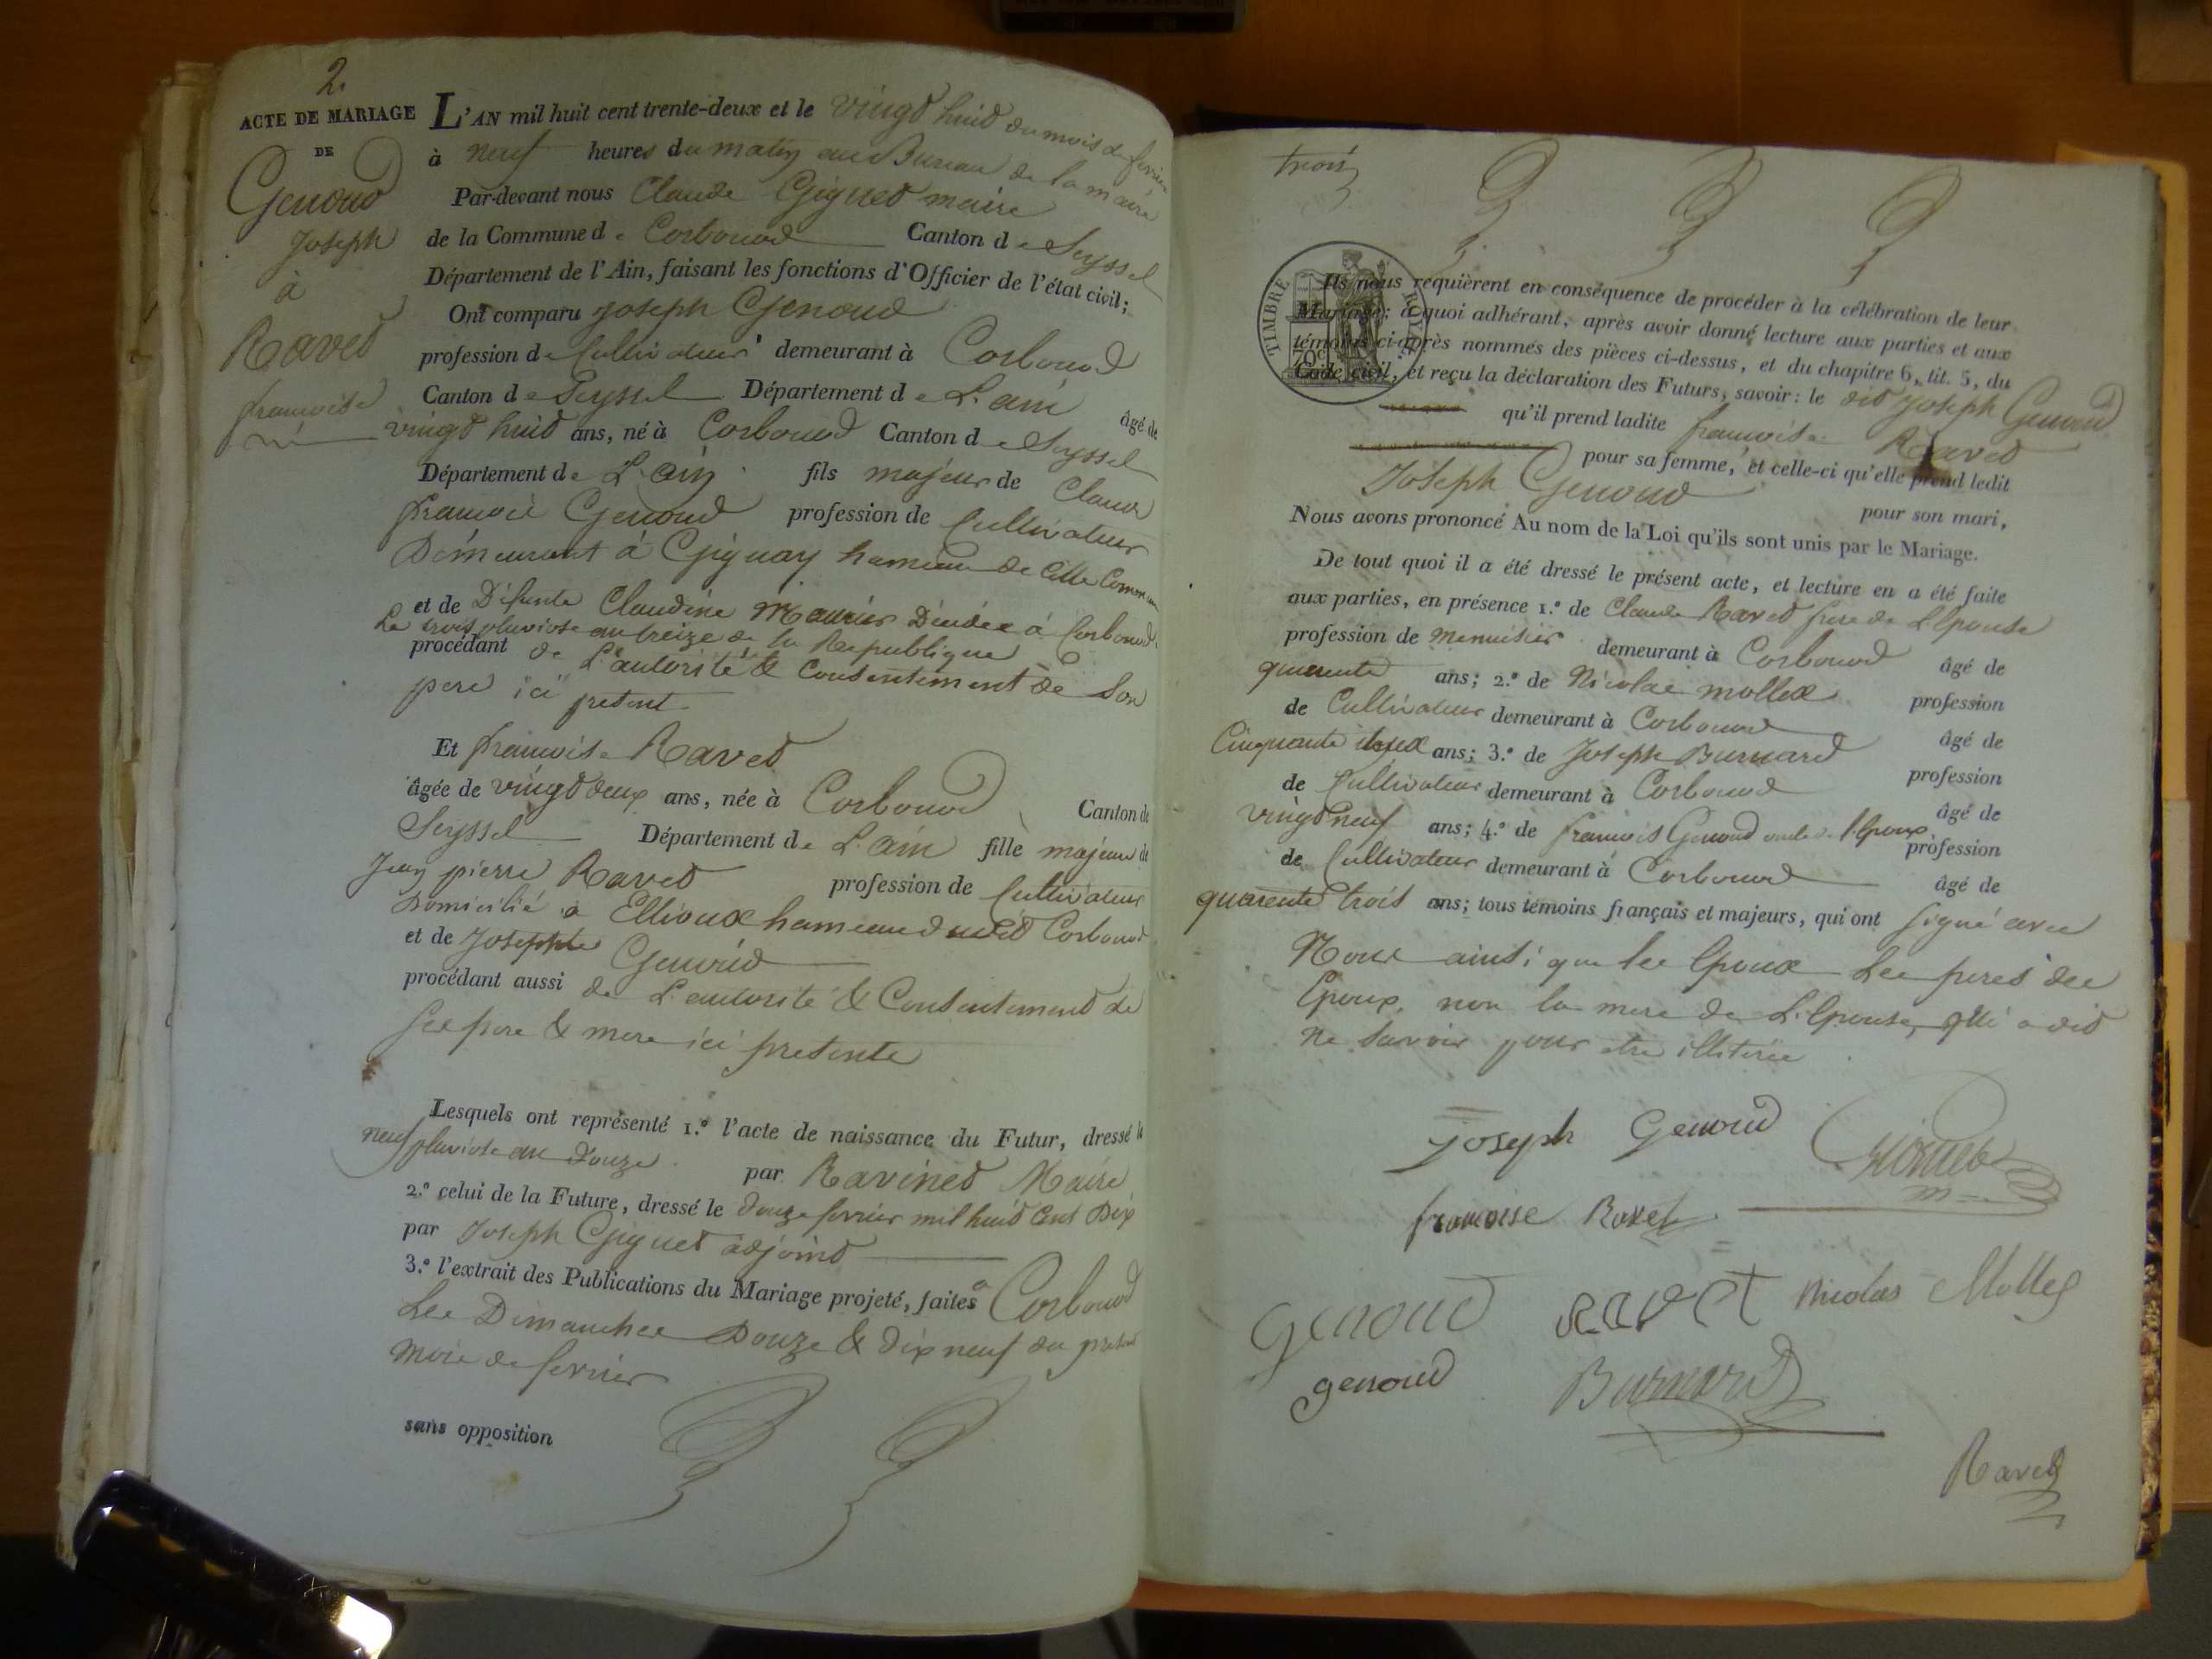 2.
ACTE DE MARIAGE
DE
Genoud
Joseph
à
Ravet
francoise
L'AN mil huit cent trente-deux et le vingt huit du mois de fevrier
à neuf heures du matin au Bureau de la mairie
Par-devant nous Claude Gignet maire
de la Commune de Corbonod Canton de Seyssel
Département de l'Ain, faisant les fonctions d'Officier de l'état civil;
Ont comparu joseph Genoud
profession de Cultivateur demeurant à Corbonod
Canton de Seyssel Département de L'ain âgé de
vingt huit ans, né à Corbonod Canton de Seyssel
Département de L'ain fils majeur de Claude
francois Genoud profession de Cultivateur
Demeurant à Gignay hameau de Cette Commune
et de Défunte Claudine Maurier Décédée à Corbonod
Le trois pluviose an treize de la Republique
procédant de L'autorité & Consentement de Son
pere ici present
Et francoise Ravet
âgée de vingt deux ans, née à Corbonod Canton de
Seyssel Département de L'ain fille majeure de
Jean pierre Ravet profession de Cultivateur
Domicilié à Ellioux hameau dudit Corbonod
et de Josephte Genoud
procédant aussi de L'autorité & Consentement de
Ses pere & mere ici presents
Lesquels ont représenté 1.º l'acte de naissance du Futur, dressé le
neuf pluviose an Douze par Ravinet Maire
2.º celui de la Future, dressé le Douze fevrier mil huit Cent Dix
par Joseph Gignet adjoint
3.º l'extrait des Publications du Mariage projeté, faites à Corbonod
Les Dimanches Douze & Dix neuf du present
mois de fevrier
sans opposition
trois
TIMBRE ROYAL
70c
Ils nous requièrent en conséquence de procéder à la célébration de leur
Mariage; à quoi adhérant, après avoir donné lecture aux parties et aux
témoins ci-après nommés des pièces ci-dessus, et du chapitre 6, tit. 5, du
Code civil, et reçu la déclaration des Futurs, savoir: le dit Joseph Genoud
qu'il prend ladite francoise Ravet
pour sa femme, et celle-ci qu'elle prend ledit
Joseph Genoud pour son mari,
Nous avons prononcé Au nom de la Loi qu'ils sont unis par le Mariage.
De tout quoi il a été dressé le présent acte, et lecture en a été faite
aux parties, en présence 1.º de Claude Ravet frere de L'Epouse
profession de Menuisier demeurant à Corbonod âgé de
quarente ans; 2.º de Nicolas mollex profession
de Cultivateur demeurant à Corbonod âgé de
Cinquante deux ans; 3.º de Joseph Burnard profession
de Cultivateur demeurant à Corbonod âgé de
vingt neuf ans; 4.º de francois Genoud oncle de l'Epoux profession
de Cultivateur demeurant à Corbonod âgé de
quarente trois ans; tous témoins français et majeurs, qui ont signé avec
Nous ainsi que les Epoux Les peres des
Epoux, non la mere de L'Epouse, qui a dit
ne Savoir pour etre illiterée
joseph Genoud Gignet
m
francoise Ravet
Genoud ravet Nicolas Mollex
genoud Burnard
Ravet